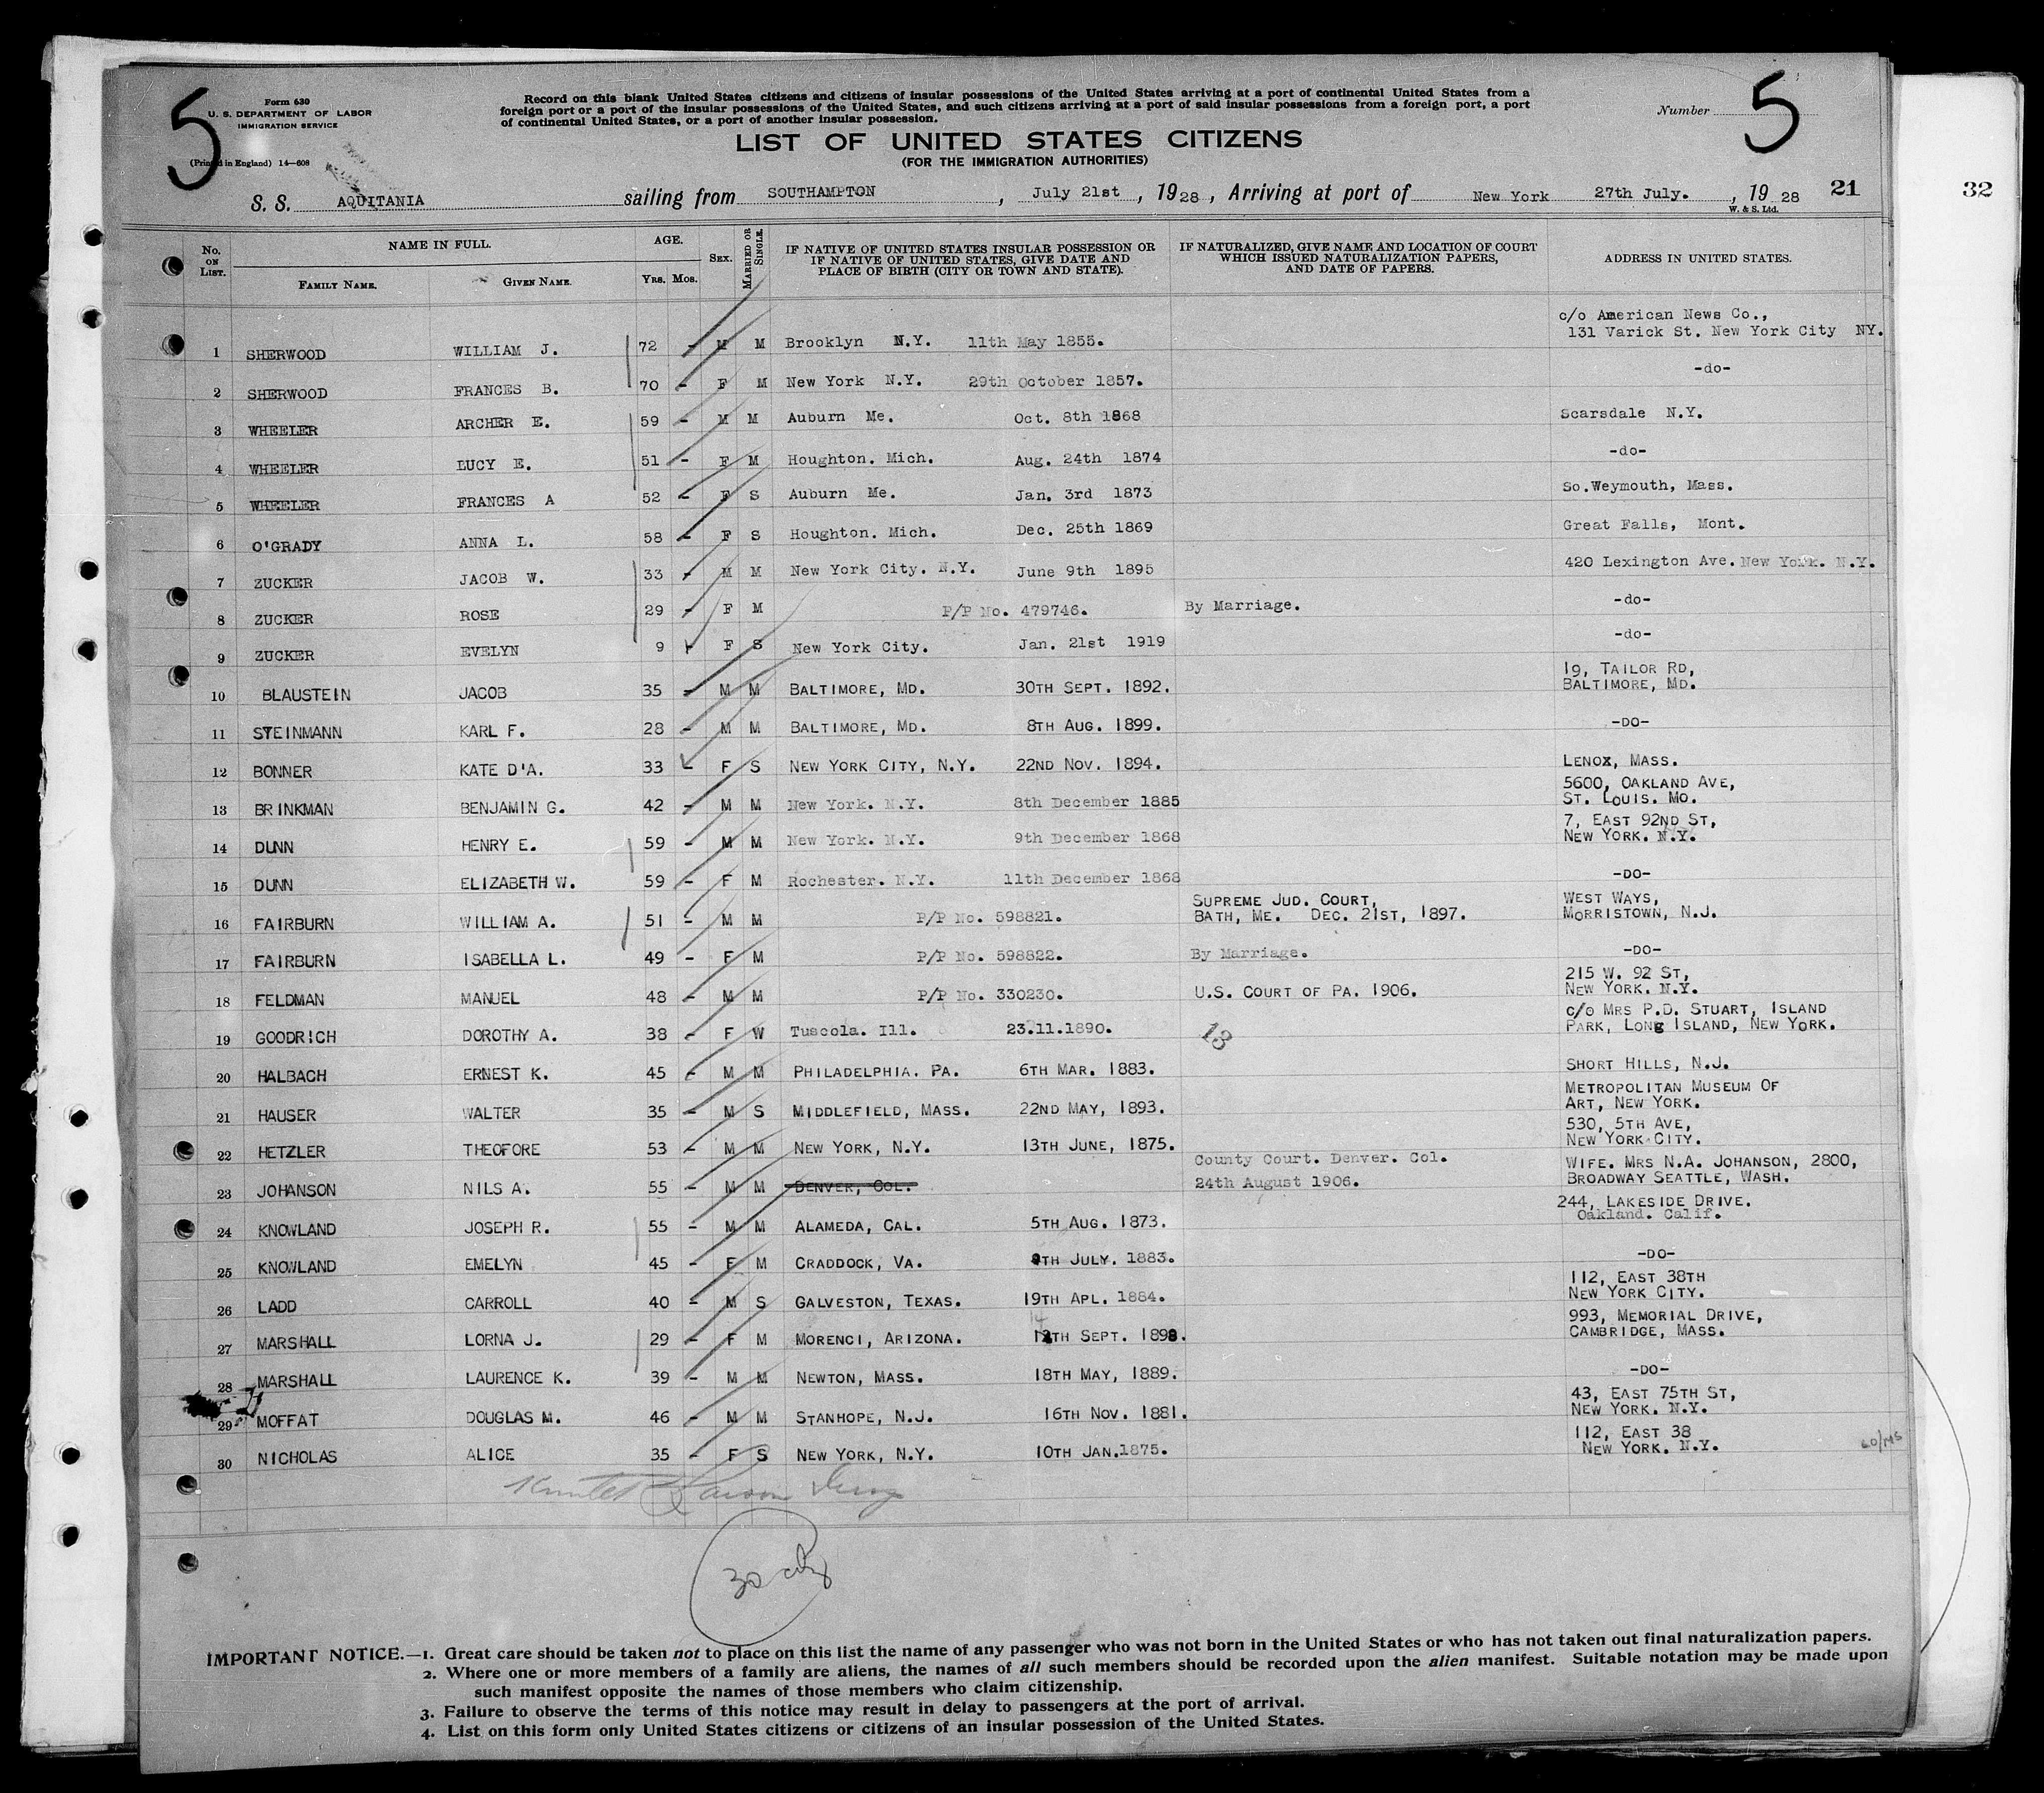 5
Form 630
U. S. DEPARTMENT OF LABOR
IMMIGRATION SERVICE
(Printed in England) 14—608
Record on this blank United States citizens and citizens of insular possessions of the United States arriving at a port of continental United States from a
foreign port or a port of the insular possessions of the United States, and such citizens arriving at a port of said insular possessions from a foreign port, a port
of continental United States, or a port of another insular possession.
Number 5
LIST OF UNITED STATES CITIZENS
(FOR THE IMMIGRATION AUTHORITIES)
S. S. AQUITANIA sailing from SOUTHAMPTON, July 21st, 1928, Arriving at port of New York 27th July., 1928 21 32
W. & S. Ltd.
No. ON LIST. NAME IN FULL. FAMILY NAME. GIVEN NAME. AGE. YRS. MOS. SEX. MARRIED OR SINGLE. IF NATIVE OF UNITED STATES INSULAR POSSESSION OR IF NATIVE OF UNITED STATES, GIVE DATE AND PLACE OF BIRTH (CITY OR TOWN AND STATE). IF NATURALIZED, GIVE NAME AND LOCATION OF COURT WHICH ISSUED NATURALIZATION PAPERS, AND DATE OF PAPERS. ADDRESS IN UNITED STATES.
1 SHERWOOD WILLIAM J. 72 - M M Brooklyn N.Y. 11th May 1855. c/o American News Co., 131 Varick St. New York City NY.
2 SHERWOOD FRANCES B. 70 - F M New York N.Y. 29th October 1857. -do-
3 WHEELER ARCHER E. 59 - M M Auburn Me. Oct. 8th 1868 Scarsdale N.Y.
4 WHEELER LUCY E. 51 - F M Houghton. Mich. Aug. 24th 1874 -do-
5 WHEELER FRANCES A 52 - F S Auburn Me. Jan. 3rd 1873 So.Weymouth, Mass.
6 O'GRADY ANNA L. 58 - F S Houghton. Mich. Dec. 25th 1869 Great Falls, Mont.
7 ZUCKER JACOB W. 33 - M M New York City. N.Y. June 9th 1895 420 Lexington Ave. New York. N.Y.
8 ZUCKER ROSE 29 - F M P/P No. 479746. By Marriage. -do-
9 ZUCKER EVELYN 9 - F S New York City. Jan. 21st 1919 -do-
10 BLAUSTEIN JACOB 35 - M M BALTIMORE, MD. 30TH SEPT. 1892. 19, TAILOR RD, BALTIMORE, MD.
11 STEINMANN KARL F. 28 - M M BALTIMORE, MD. 8TH AUG. 1899. -DO-
12 BONNER KATE D'A. 33 - F S NEW YORK CITY, N.Y. 22ND NOV. 1894. LENOX, MASS.
13 BRINKMAN BENJAMIN G. 42 - M M New York. N.Y. 8th December 1885 5600, OAKLAND AVE, ST. LOUIS. MO.
14 DUNN HENRY E. 59 - M M New York. N.Y. 9th December 1868 7, EAST 92ND ST, NEW YORK. N.Y.
15 DUNN ELIZABETH W. 59 - F M Rochester. N.Y. 11th December 1868 -DO-
16 FAIRBURN WILLIAM A. 51 - M M P/P No. 598821. SUPREME JUD. COURT, BATH, ME. DEC. 21ST, 1897. WEST WAYS, MORRISTOWN, N.J.
17 FAIRBURN ISABELLA L. 49 - F M P/P No. 598822. By Marriage. -DO-
18 FELDMAN MANUEL 48 - M M P/P No. 330230. U.S. COURT OF PA. 1906. 215 W. 92 ST, NEW YORK. N.Y.
19 GOODRICH DOROTHY A. 38 - F W Tuscola. Ill. 23.11.1890. 13 c/o MRS P.D. STUART, ISLAND PARK, LONG ISLAND, NEW YORK.
20 HALBACH ERNEST K. 45 - M M PHILADELPHIA. PA. 6TH MAR. 1883. SHORT HILLS, N.J.
21 HAUSER WALTER 35 - M S MIDDLEFIELD, MASS. 22ND MAY, 1893. METROPOLITAN MUSEUM OF ART, NEW YORK.
22 HETZLER THEOFORE 53 - M M NEW YORK, N.Y. 13TH JUNE, 1875. 530, 5TH AVE, NEW YORK CITY.
23 JOHANSON NILS A. 55 - M M DENVER, COL. County Court. Denver. Col. 24th August 1906. WIFE. MRS N.A. JOHANSON, 2800, BROADWAY SEATTLE, WASH.
24 KNOWLAND JOSEPH R. 55 - M M ALAMEDA, CAL. 5TH AUG. 1873. 244, LAKESIDE DRIVE. Oakland. Calif.
25 KNOWLAND EMELYN 45 - F M CRADDOCK, VA. TH JULY. 1883. -DO-
26 LADD CARROLL 40 - M S GALVESTON, TEXAS. 19TH APL. 1884. 112, EAST 38TH NEW YORK CITY.
27 MARSHALL LORNA J. 29 - F M MORENCI, ARIZONA. 14 TH SEPT. 1898. 993, MEMORIAL DRIVE, CAMBRIDGE, MASS.
28 MARSHALL LAURENCE K. 39 - M M NEWTON, MASS. 18TH MAY, 1889. -DO-
29 MOFFAT DOUGLAS M. 46 - M M STANHOPE, N.J. 16TH NOV. 1881. 43, EAST 75TH ST, NEW YORK. N.Y.
30 NICHOLAS ALICE 35 - F S NEW YORK, N.Y. 10TH JAN. 1875. 112, EAST 38 NEW YORK. N.Y.
30
IMPORTANT NOTICE.—1. Great care should be taken not to place on this list the name of any passenger who was not born in the United States or who has not taken out final naturalization papers.
2. Where one or more members of a family are aliens, the names of all such members should be recorded upon the alien manifest. Suitable notation may be made upon
such manifest opposite the names of those members who claim citizenship.
3. Failure to observe the terms of this notice may result in delay to passengers at the port of arrival.
4. List on this form only United States citizens or citizens of an insular possession of the United States.